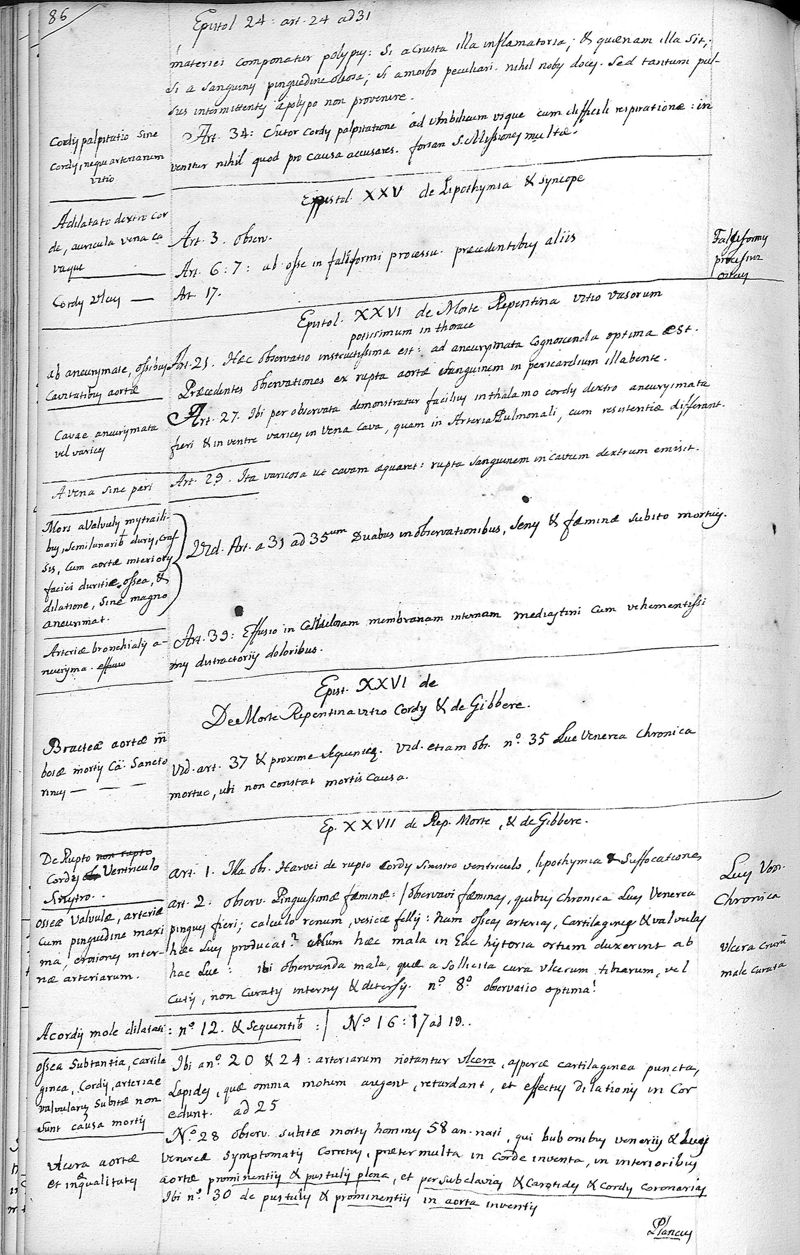 86
Epistol 24: art. 24 ad 31
materiei componatur polypus: si a crusta illa inflamatoria; & quænam illa sit;
si a sanguinis pinguedine oleosa; si a morbo peculiari. nihil nobis docet. sed tantum pul-
sus intermittentes a polypo non provenire.
Cordis palpitatio sine
Cordis, neque arteriarum
vitio
Art. 34: Sutor Cordis palpitatione ad Umbilicum usque cum difficili respiratione: in
venitur nihil quod pro causa accusares. forsan S. Missiones multæ.
Epistol. XXV de Lipothymia & syncope
A dilatato dextro cor
de, auricula vena ca
vaque
Art. 3. observ.
Art. 6: 7: ab osse in falciformi processu. præcedentibus aliis
Falciformis
processus
osseus
Cordis Ulcus —
Art. 17.
Epistol. XXVI de Morte Repentina vitio vasorum
potissimum in thorace
ab aneurysmate, ossibus
Cavitatibus aortæ
Art. 21. Hæc observatio instructissima est: ad aneurysmata Cognoscenda optima est.
Præcedentes observationes ex rupta aorta sanguinem in pericardium illabente.
Cavae aneurysmata
vel varices
Art. 27. Ibi per observata demonstratur facilius in thalamo cordis dextro aneurysmata
fieri & in ventre varices in Vena Cava, quam in Arteria Pulmonali, cum resistentiæ differant.
A vena sine pari
Art. 29. Ita varicosa ut cavam æquaret: rupta sanguinem in cavum dextrum emisit.
Mors a Valvulis mytrali
bus, Semilunarib. duris, cras
sis, Cum aortæ interioris
faciei duritie ossea, &
dilatione, Sine magno
aneurismat.
Vid. Art. a 31 ad 35um Duabus in observationibus, senis & fæminæ subito mortuis.
Arteriæ bronchialis a-
neurysma. effusio
Art. 39: Effusio in Cellulosam membranam internam mediastini cum vehementissi
mis distractoriis doloribus.
Epist. XXVI de
De Morte Repentina vitio Cordis & de Gibbere.
Bracteæ aortæ
bosæ mortis Ca. Sancto
rinus — — —
Vid. art. 37 & proxime sequentes. Vid. etiam obs. n.º 35 Lue Venerea Chronica
mortuæ, ubi non constat mortis Causa.
Ep. XXVII de Rep. Morte, & de Gibbere.
De Rupto non rupto
Cordis Ventriculo
Sinistro.
Art. 1. Illa obs. Harvei de rupto Cordis Sinistro ventriculo, lipothymia & Suffocationes
Lues Ven.
Chronica
osseæ Valvulæ, arteriæ
cum pinguedine maxi
ma, erosiones inter-
næ arteriarum.
Art. 2. observ. Pinguissimæ fæminæ: / observavi fæminas, quibus Chronica Lues Venerea
pingues fieri; calculo renum, vesicæ fellis: Num osseas arterias, Cartilagines & valvulas
hæc Lues producat? Num hæc mala in hac historia ortum duxerint ab
hac Lue: ibi observanda mala, quæ a sollicita cura ulcerum tibiarum, vel
Cutis, non Curatis internis & detersis. n.º 8º observatio optima!
Ulcera Crurum
male curata
A cordis mole dilatati:
n.º 12. & Sequentib. : / N.º 16: 17 ad 19..
ossea Substantia, Cartila
ginea, Cordis, arteriæ
valvularum Subitæ non
sunt causa mortis
Ibi an.º 20 & 24: arteriarum notantur ulcera, asperæ cartilaginea puncta,
Lapides, quæ omnia motum augent, retardant, et effectus dilationis in Cor
edunt. ad 25
Ulcera aortæ
et inæqualitates
N.º 28 observ. subitæ mortis hominis 58 an. nati, qui bubonibus veneriis & Lues
venereæ symptomatis Correptus, præter multa in Corde inventa, in interioribus
aortæ prominentiis & pustulis plena, et per subclavias & Carotides & Cordis Coronarias
Ibi n.º 30 de pustulis & prominentiis in aorta inventis
Plancus